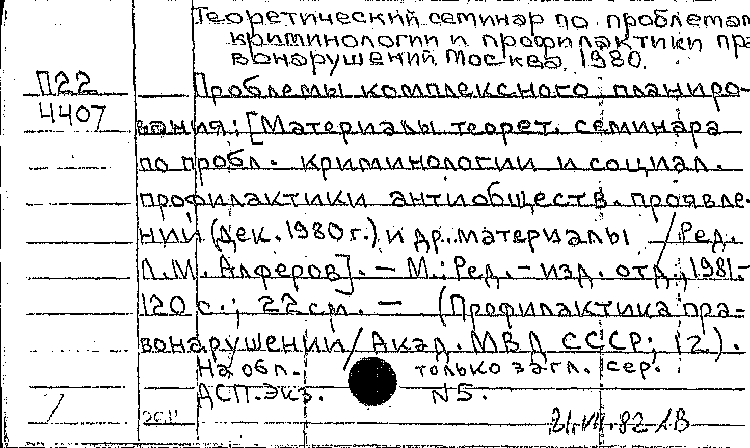 Теоретический семинар по проблемам
криминологии и профилактики пра
вонарушений. Москва. 1980.
П22
4407
Проблемы комплексного планиро-
вания: [Материалы теорет. семинара
по пробл. криминологии и социал.
профилактики антиобществ. проявле-
ний (дек. 1980 г.) и др. материалы / Ред.
Л.М. Алферов]. - М.: Ред.-изд. отд., 1981.-
120 с.; 22 см. — (Профилактика пра-
вонарушении/Акад. МВД СССР; (2).
На обл. только загл. сер.
ДСП. Экз. N5.